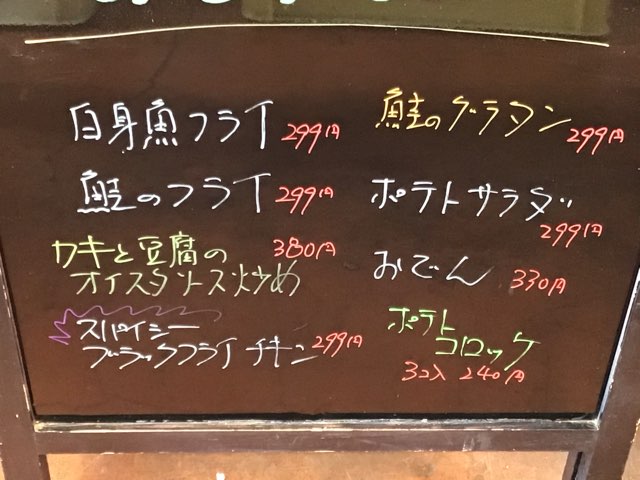 白身魚フライ 299円
鮭のフライ 299円
カキと豆腐の 380円
オイスタソース炒め
スパイシー
ブラックフライチキン 299円
鮭のグラタン 299円
ポテトサラダ
299円
おでん 330円
ポテト
コロッケ
3コ入 240円